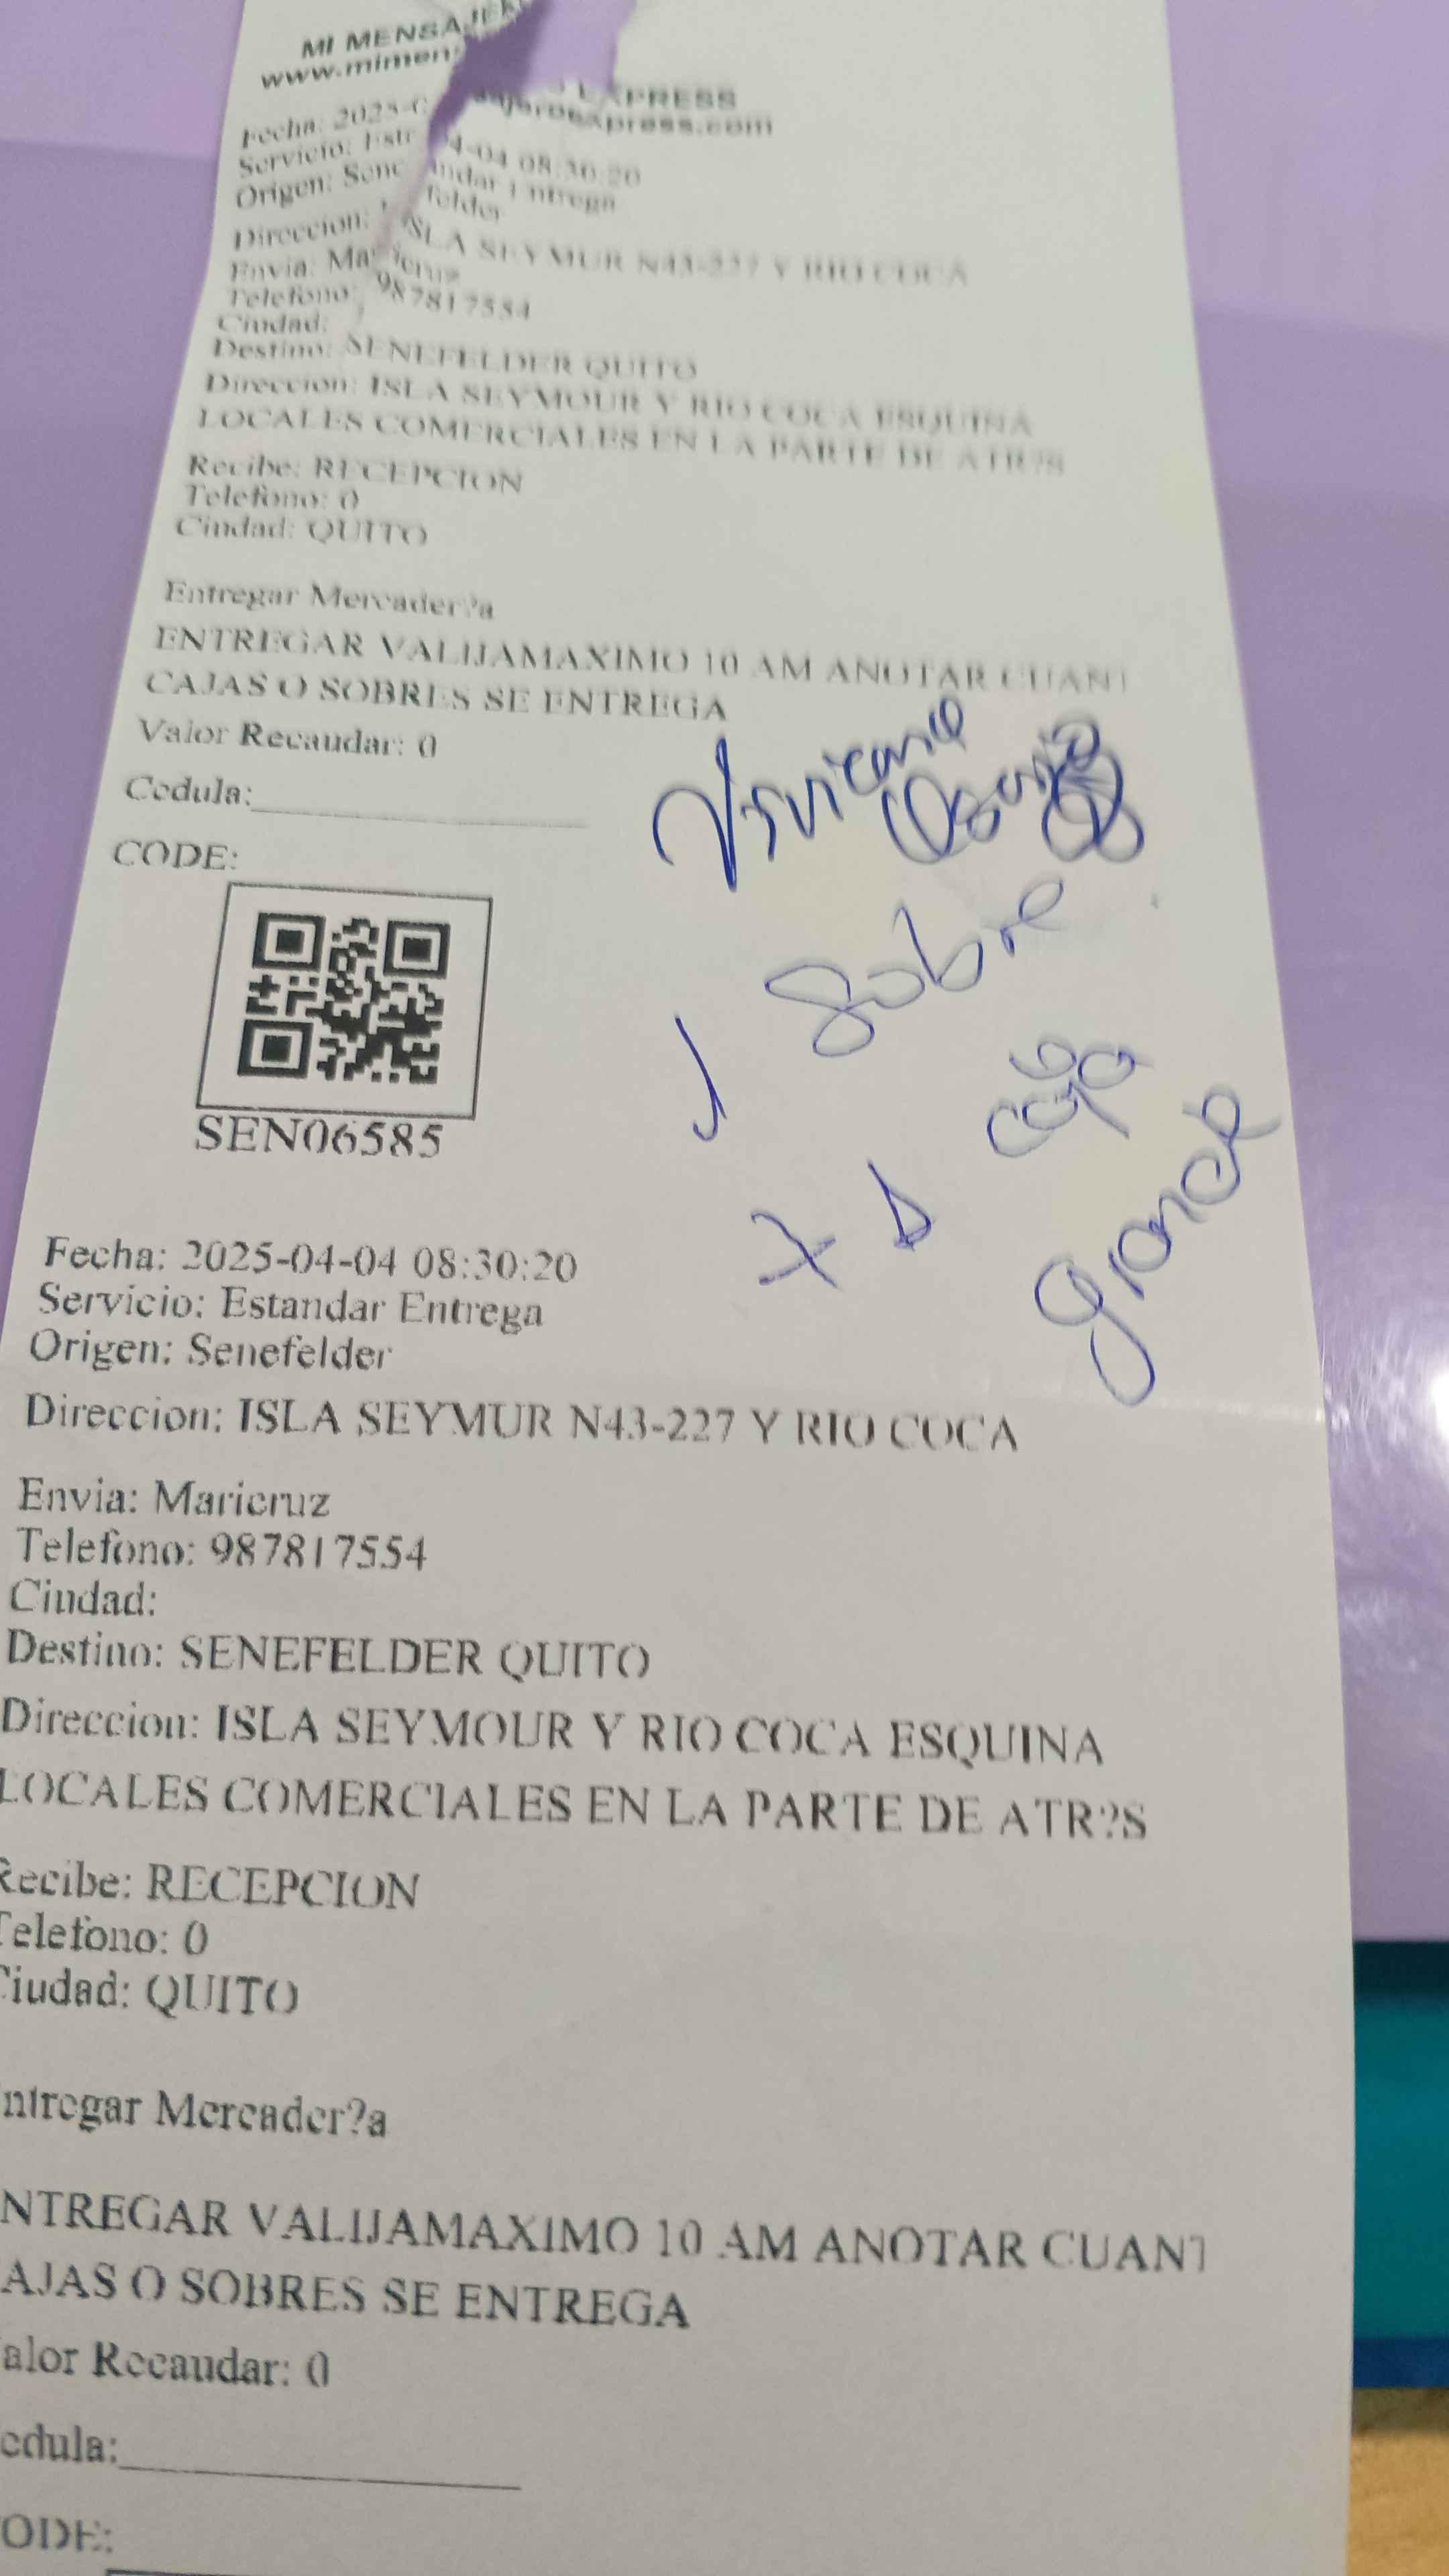 MI MENSAJERO EXPRESS
www.mimensajeroexpress.com
Fecha: 2025-04-04 08:30:20
Servicio: Estandar Entrega
Origen: Senefelder
Direccion: ISLA SEYMUR N43-227 Y RIO COCA
Envia: Maricruz
Telefono: 987817554
Ciudad:
Destino: SENEFELDER QUITO
Direccion: ISLA SEYMOUR Y RIO COCA ESQUINA
LOCALES COMERCIALES EN LA PARTE DE ATR?S
Recibe: RECEPCION
Telefono: 0
Ciudad: QUITO
Entregar Mercader?a
ENTREGAR VALIJAMAXIMO 10 AM ANOTAR CUANT
CAJAS O SOBRES SE ENTREGA
Valor Recaudar: 0
Cedula:
Viviana
CODE:
1 Sobre
caja
grande
SEN06585
Fecha: 2025-04-04 08:30:20
Servicio: Estandar Entrega
Origen: Senefelder
Direccion: ISLA SEYMUR N43-227 Y RIO COCA
Envia: Maricruz
Telefono: 987817554
Ciudad:
Destino: SENEFELDER QUITO
Direccion: ISLA SEYMOUR Y RIO COCA ESQUINA
LOCALES COMERCIALES EN LA PARTE DE ATR?S
Recibe: RECEPCION
Telefono: 0
Ciudad: QUITO
ntregar Mercader?a
NTREGAR VALIJAMAXIMO 10 AM ANOTAR CUANT
AJAS O SOBRES SE ENTREGA
alor Recaudar: 0
edula:
ODE: